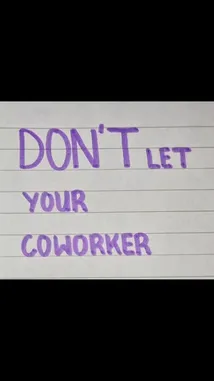 DON'T LET
YOUR
COWORKER